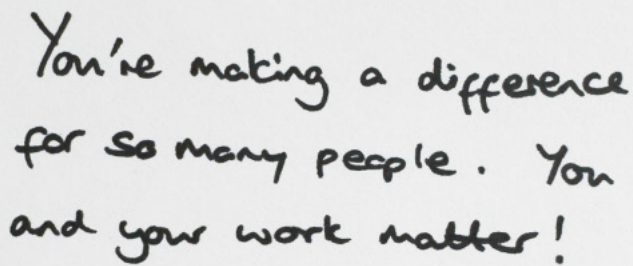 You're making a difference
for so many people. You
and your work matter!